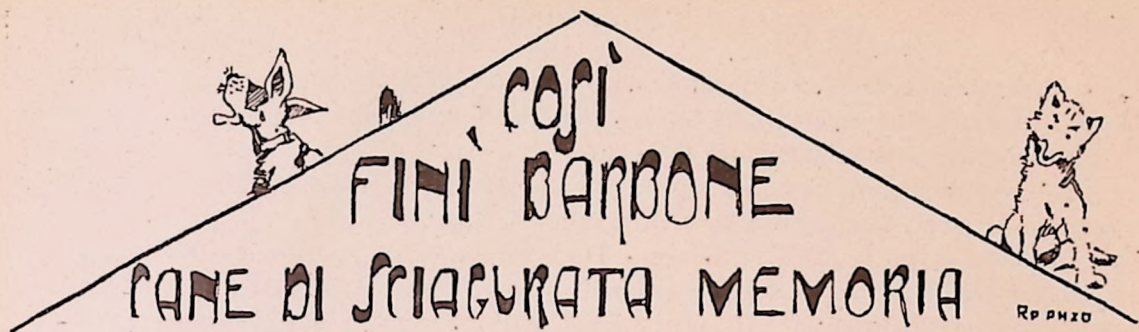 COSÌ
FINÌ BARBONE
CANE DI SCIAGURATA MEMORIA